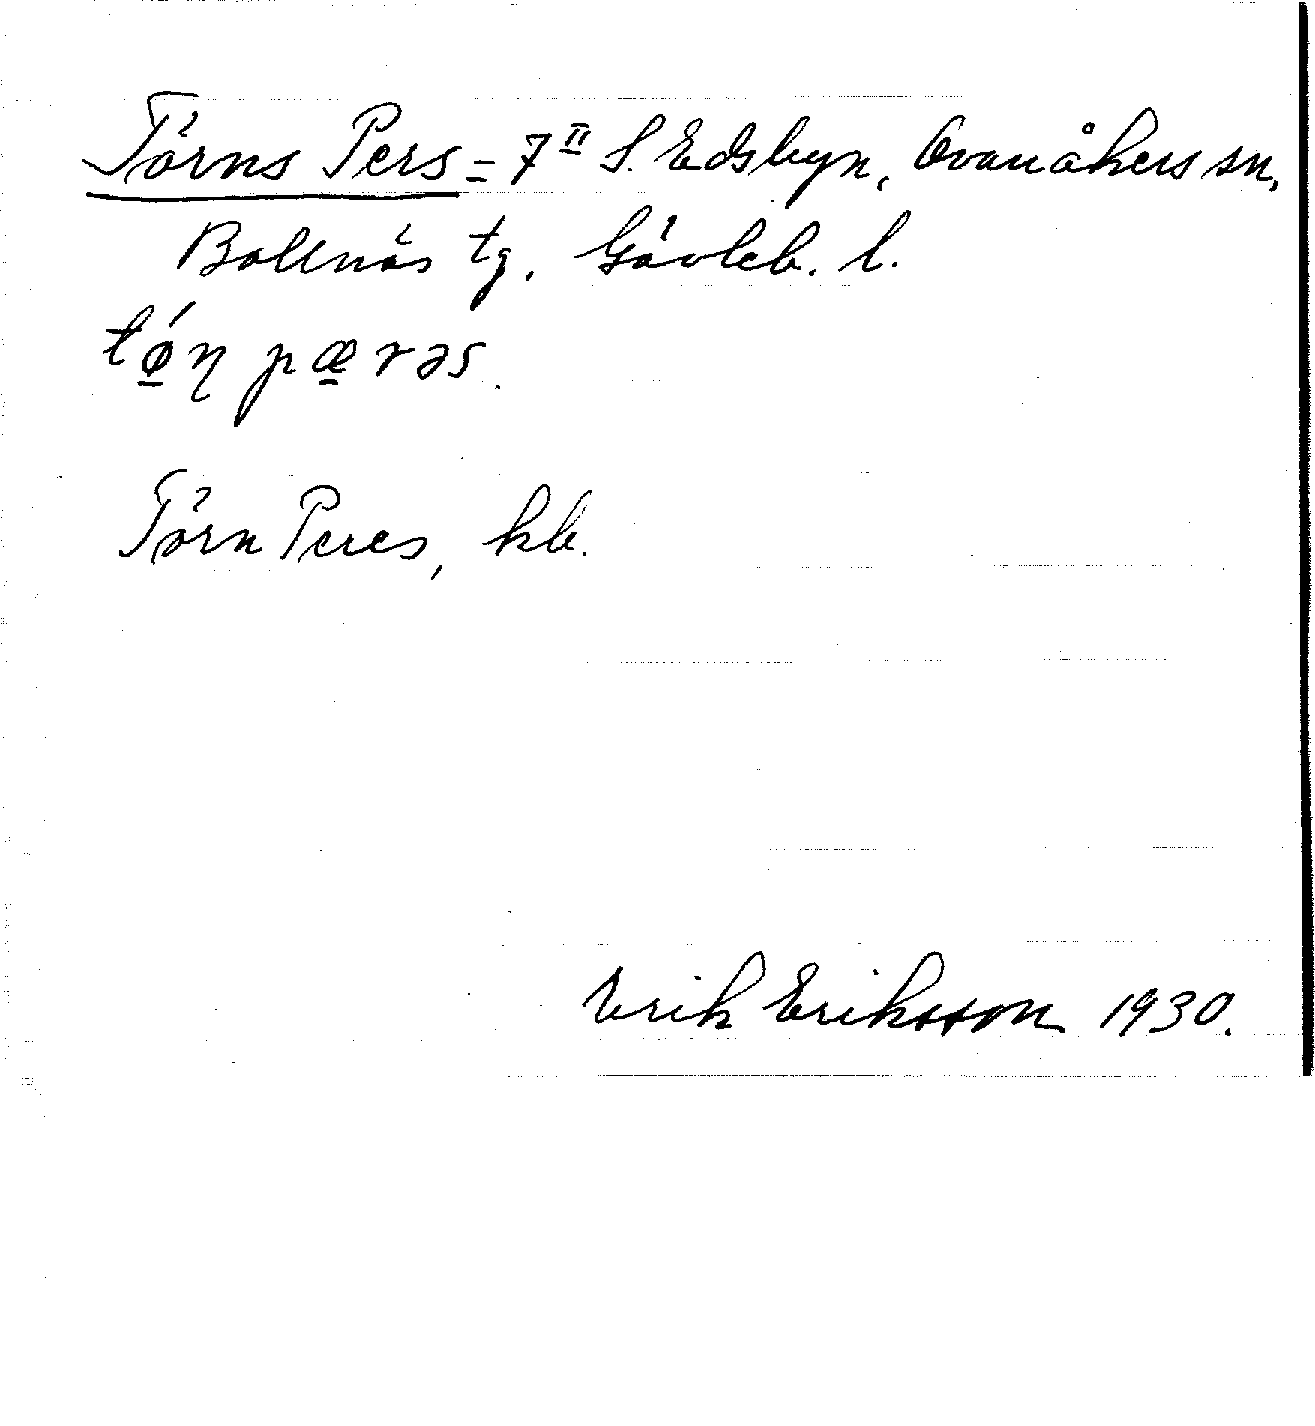 Törns Pers = 7 II S. Edsbyn, Ovanåkers sn,
Bollnäs tg. Gävleb. l.
tǿ̱η pæ̱rəs.
Törn Peres, kb.
Erik Eriksson 1930.